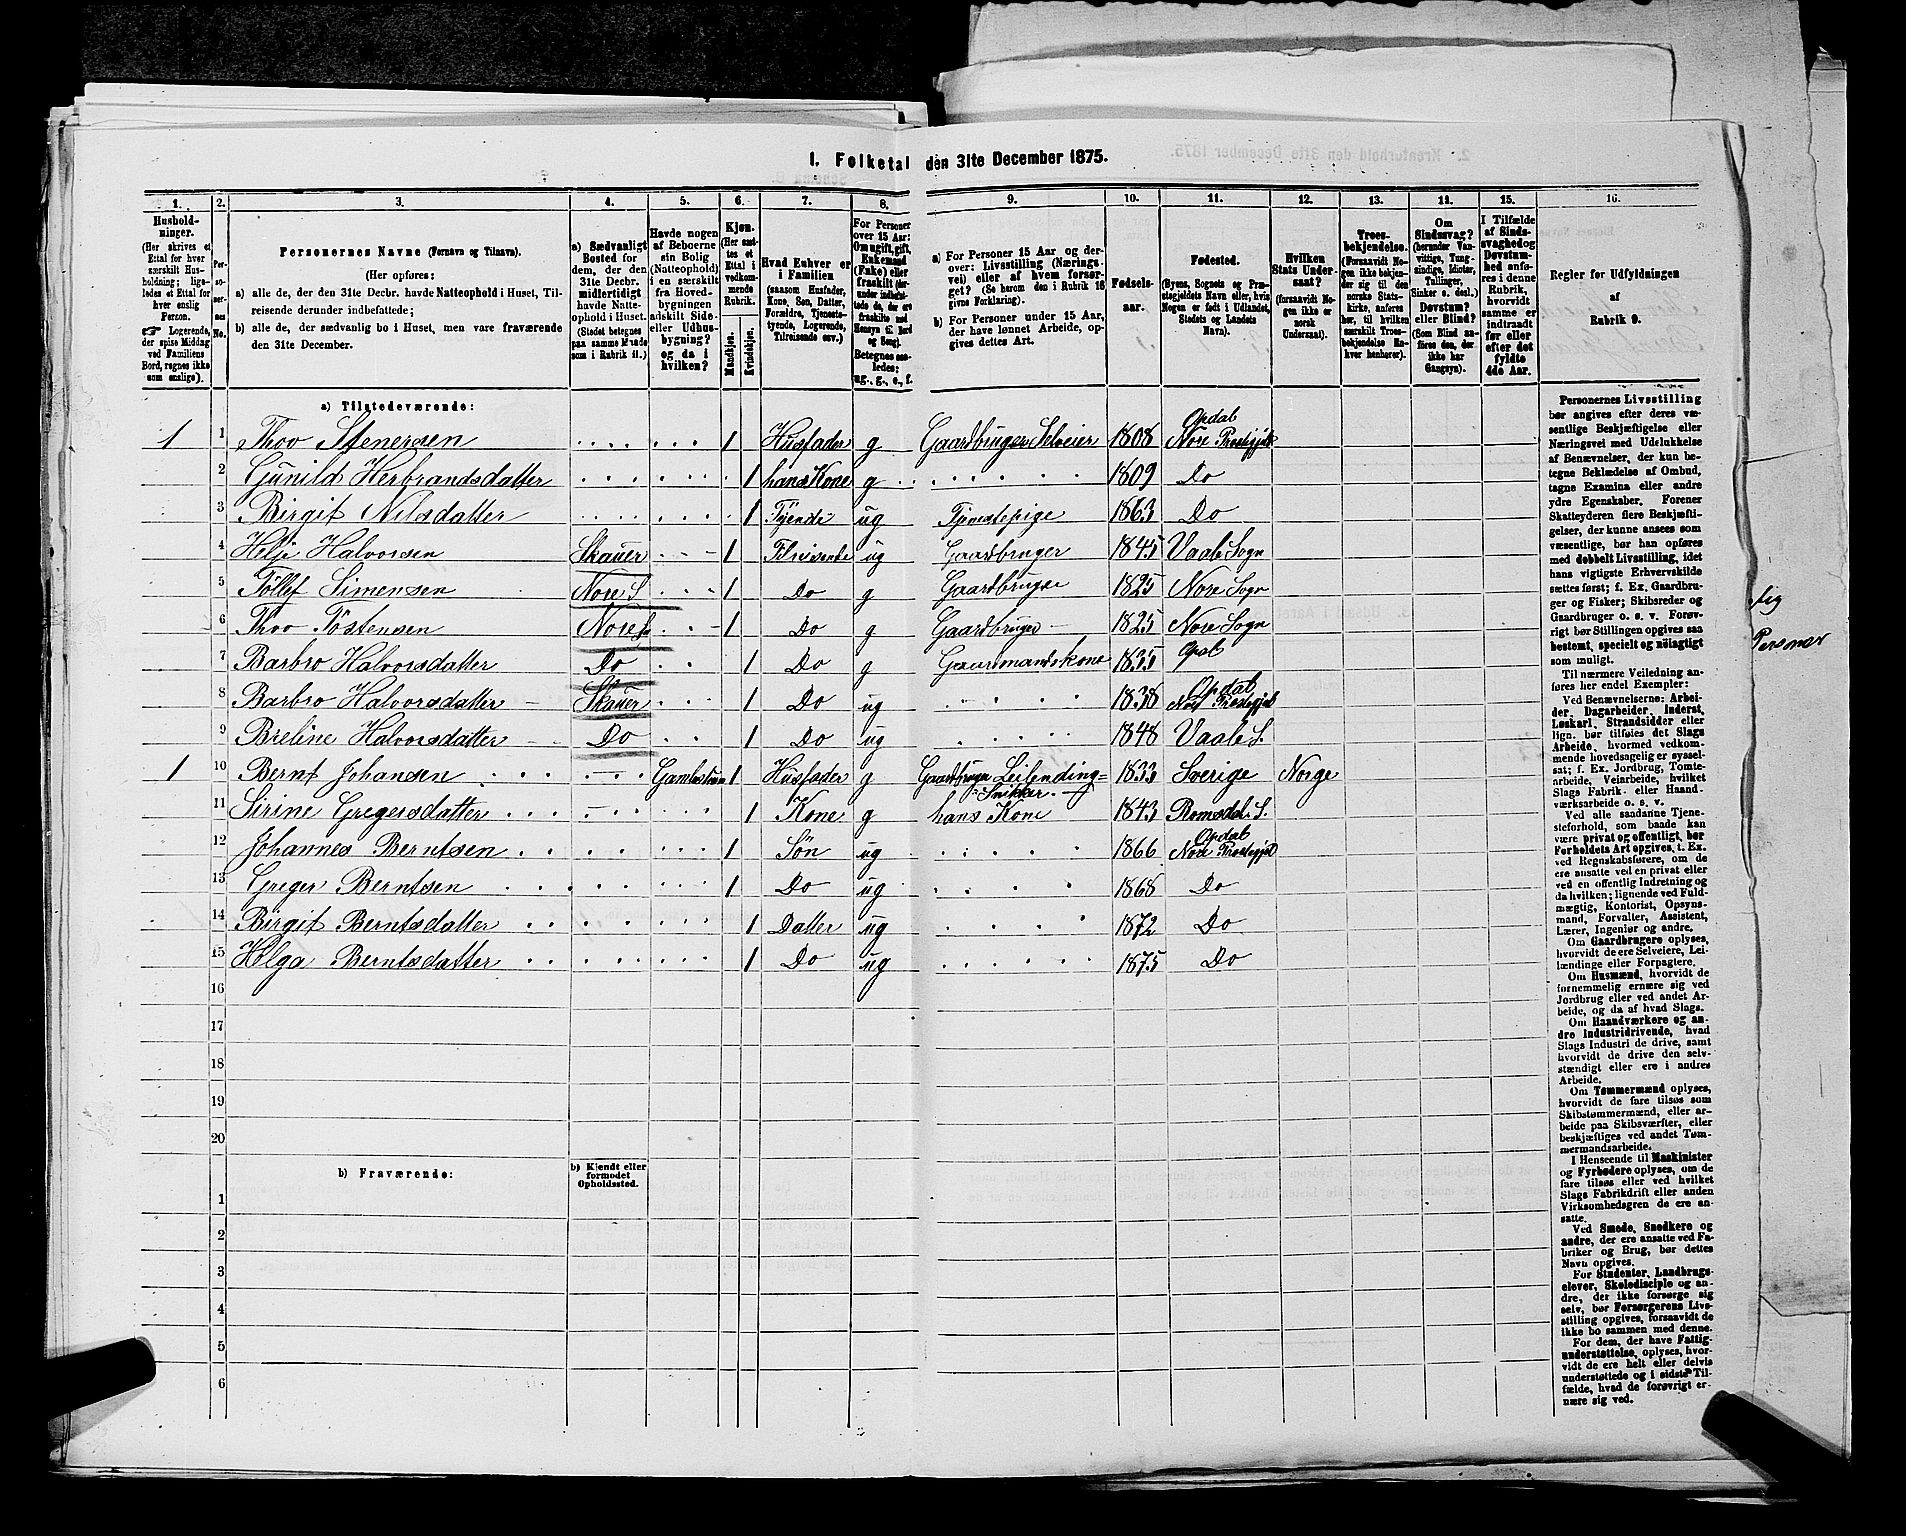 1. Folketal den 31te December 1875.
1. 2. 3. 4. 5. 6. 7. 8. 9. 10. 11. 12. 13. 14. 15. 16.
Hushold-
ninger.
(Her skrives et
Ettal for hver
særskilt Hus-
holdning; lige-
ledes et Ettal for
hver enslig
Person.
☞ Logerende,
der spise Middag
ved Familiens
Bord, regnes ikke
som enslige).
Personernes No.
Personernes Navne (Fornavn og Tilnavn).
(Her opføres:
a) alle de, der den 31te Decbr. havde Natteophold i Huset, Til-
reisende derunder indbefattede;
b) alle de, der sædvanlig bo i Huset, men vare fraværende
den 31te December.
a) Sædvanligt
Bosted for
dem, der den
31te Decbr.
midlertidigt
havde Natte-
ophold i Huset.
(Stedet betegnes
paa samme Maade
som i Rubrik 11.)
Havde nogen
af Beboerne
sin Bolig
(Natteophold)
i en særskilt
fra Hoved-
bygningen
adskilt Side-
eller Udhus-
bygning?
og da i
hvilken?
Kjøn.
(Her sæt-
tes et
Ettal i
vedkom-
mende
Rubrik.
Mandkjøn.
Kvindekjøn.
Hvad Enhver er
i Familien
(saasom Husfader,
Kone, Søn, Datter,
Forældre, Tjeneste-
tyende, Logerende,
Tilreisende osv.)
For Personer
over 15 Aar:
Om ugift, gift,
Enkemand
(Enke) eller
fraskilt
ug., g., e., f.
a) For Personer 15 Aar og der-
over: Livsstilling (Nærings-
vei) eller af hvem forsør-
get? (Se herom den i Rubrik 16
givne Forklaring).
b) For Personer under 15 Aar,
der have lønnet Arbeide, op-
gives dettes Art.
Fødsels-
aar.
Fødested.
(Byens, Sognets og Præ-
stegjeldets Navn eller, hvis
Nogen er født i Udlandet,
Stedets og Landets
Navn).
Hvilken
Stats Under-
saat?
(forsaavidt No-
gen ikke er
norsk
Undersaat).
Troes-
bekjendelse.
(Forsaavidt No-
gen ikke bekjen-
der sig til den
norske Stats-
kirke, anføres
her, til hvilken
særskilt Troes-
bekjendelse En-
hver henhører).
Om
Sindssvag?
(herunder Van-
vittige, Tung-
sindige, Idioter,
Tullinger,
Sinker o. desl.)
Døvstum?
eller Blind?
(Som Blind an-
føres den, der
ikke har
Gangsyn).
I Tilfælde
af Sinds-
svaghed og
Døvstum-
hed anfø-
res i denne
Rubrik,
hvorvidt
samme er
indtraadt
før eller
efter det
fyldte
4de Aar.
Regler for Udfyldningen
af
Rubrik 9.
a) Tilstedeværende:
1 1 Thov Stenersen 1 Husfader g Gaardbruger Selveier 1808 Opdal Nore Prestegjeld
2 Gunild Herbrandsdatter 1 hans Kone g 1809 Do
3 Birgit Nilsdatter 1 Tjende ug Tjenestepige 1863 Do
4 Helje Halvorsen Skauer 1 Tilreisende ug Gaardbruger 1845 Vaale Sogn
5 Tollef Simensen Nore S 1 Do g Gaardbruger 1825 Nore Sogn
6 Thov Tostensen Nore S 1 Do g Gaardbruger 1825 Nore Sogn
7 Barbro Halvorsdatter Do 1 Do g Gaardmandskone 1835 Opdal
8 Barbro Halvorsdatter Skauer 1 Do ug 1838 Opdal Nore Prestegjel
9 Breline Halvorsdatter Do 1 Do ug 1848 Vaale S.
1 10 Bernt Johansen Gamlestuen 1 Husfader g Gaardbruger Leilending Snikker 1833 Sverige Norge
11 Sirine Gregersdatter 1 Kone g hans Kone 1843 Romsdal S.
12 Johannes Berntsen 1 Søn ug 1866 Opdal Nore Prestegjel
13 Greger Berntsen 1 Do ug 1868 Do
14 Birgit Berntsdatter 1 Datter ug 1872 Do
15 Helga Berntsdatter 1 Do ug 1875 Do
16
17
18
19
20
b) Fraværende:
b) Kjendt eller
formodet
Opholdssted.
1
2
3
4
5
6
Personernes Livsstilling
bør angives efter deres væ-
sentlige Beskjæftigelse eller
Næringsvei med Udelukkelse
af Benævnelser, der kun be-
tegne Beklædelse af Ombud,
tagne Examina eller andre
ydre Egenskaber. Forener
Skatteyderen flere Beskjæfti-
gelser, der kunne ansees som
væsentlige, bør han opføres
med dobbelt Livsstilling, idet
hans vigtigste Erhvervskilde
sættes først; f. Ex. Gaardbru-
ger og Fisker; Skibsreder og
Gaardbruger o. s. v. Forøv-
rigt bør Stillingen opgives saa
bestemt, specielt og nøiagtigt
som muligt.
Til nærmere Veiledning an-
føres her endel Exempler:
Ved Benævnelserne: Arbei-
der, Dagarbeider, Inderst,
Løskarl, Strandsidder eller
lign. bør tilføies det Slags
Arbeide, hvormed vedkom-
mende hovedsagelig er syssel-
sat; f. Ex. Jordbrug, Tomte-
arbeide, Veiarbeide, hvilket
Slags Fabrik- eller Haand-
værksarbeide o. s. v.
Ved alle saadanne Tjene-
steforhold, som baade kan
være privat og offentligt, bør
Forholdets Art opgives, t. Ex.
ved Regnskabsførere, om de
ere ansatte ved en privat eller
ved en offentlig Indretning og
da hvilken; lignende ved Fuld-
mægtig, Kontorist, Opsyns-
mand, Forvalter, Assistent,
Lærer, Ingeniør og andre.
Om Gaardbrugere oplyses,
hvorvidt de ere Selveiere, Lei-
lændinge eller Forpagtere.
Om Husmænd, hvorvidt de
fornemmelig ernære sig ved
Jordbrug eller ved andet Ar-
beide, og da af hvad Slags.
Om Haandværkere og an-
dre Industridrivende, hvad
Slags Industri de drive, samt
hvorvidt de drive den selv-
stændigt eller ere i andres
Arbeide.
Om Tømmermænd oplyses,
hvorvidt de fare tilsøs som
Skibstømmermænd, eller ar-
beide paa Skibsværfter, eller
beskjæftiges ved andet Tøm-
mermandsarbeide.
I Henseende til Maskinister
og Fyrbødere oplyses, om de
fare tilsøs eller ved hvilket
Slags Fabrikdrift eller anden
Virksomhedsgren de ere an-
satte.
Ved Smede, Snedkere og
andre, der ere ansatte ved Fa-
briker og Brug, bør dettes
Navn opgives.
For Studenter, Landbrugs-
elever, Skoledisciple og an-
dre, der ikke forsørge sig
selv, bør Forsørgerens Livs-
stilling opgives, forsaavidt de
ikke bo sammen med denne.
For dem, der have Fattig-
understøttelse, oplyses, hvor-
vidt de ere helt eller delvis
understøttede og i sidste Til-
fælde, hvad de forøvrigt er-
nære sig ved.